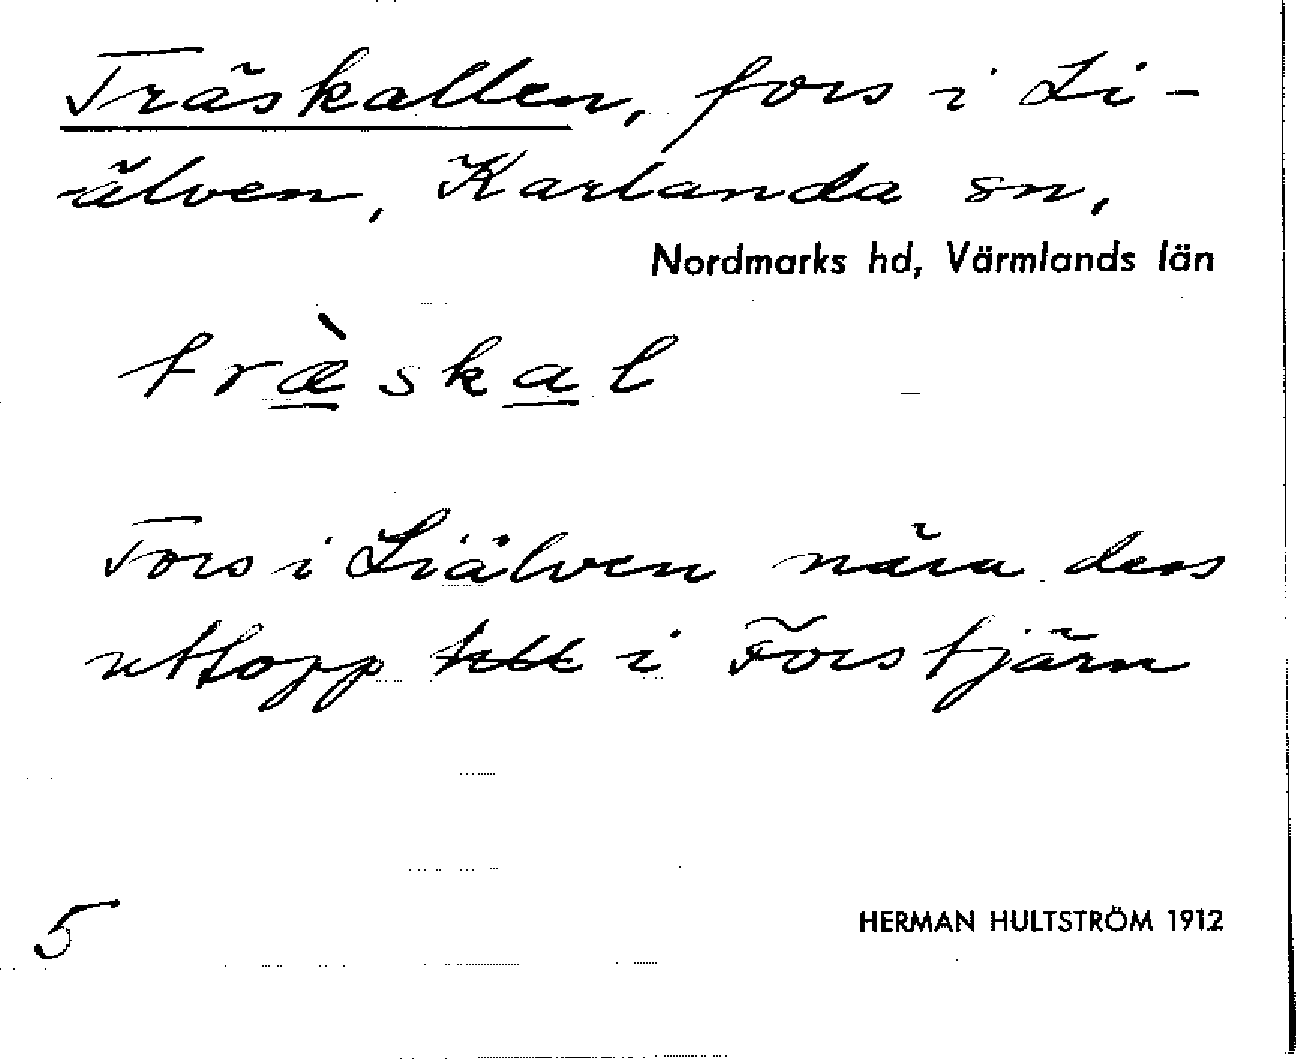 Träskallen, fors i Li-
älven, Karlanda sn,
Nordmarks hd, Värmlands län
træ̀skal
Fors i Liälven nära dess
utlopp till i Forstjärn
5
HERMAN HULTSTRÖM 1912